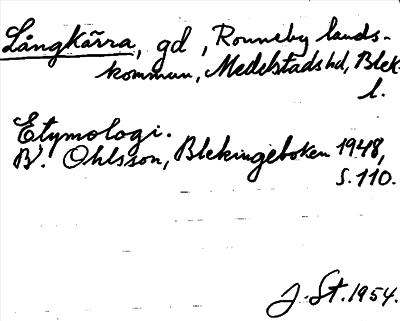 Långkärra, gd, Ronneby lands-
kommun, Medelstads hd, Blek.
l.
Etymologi.
B. Ohlsson, Blekingeboken 1948,
s. 110.
J. St. 1954.